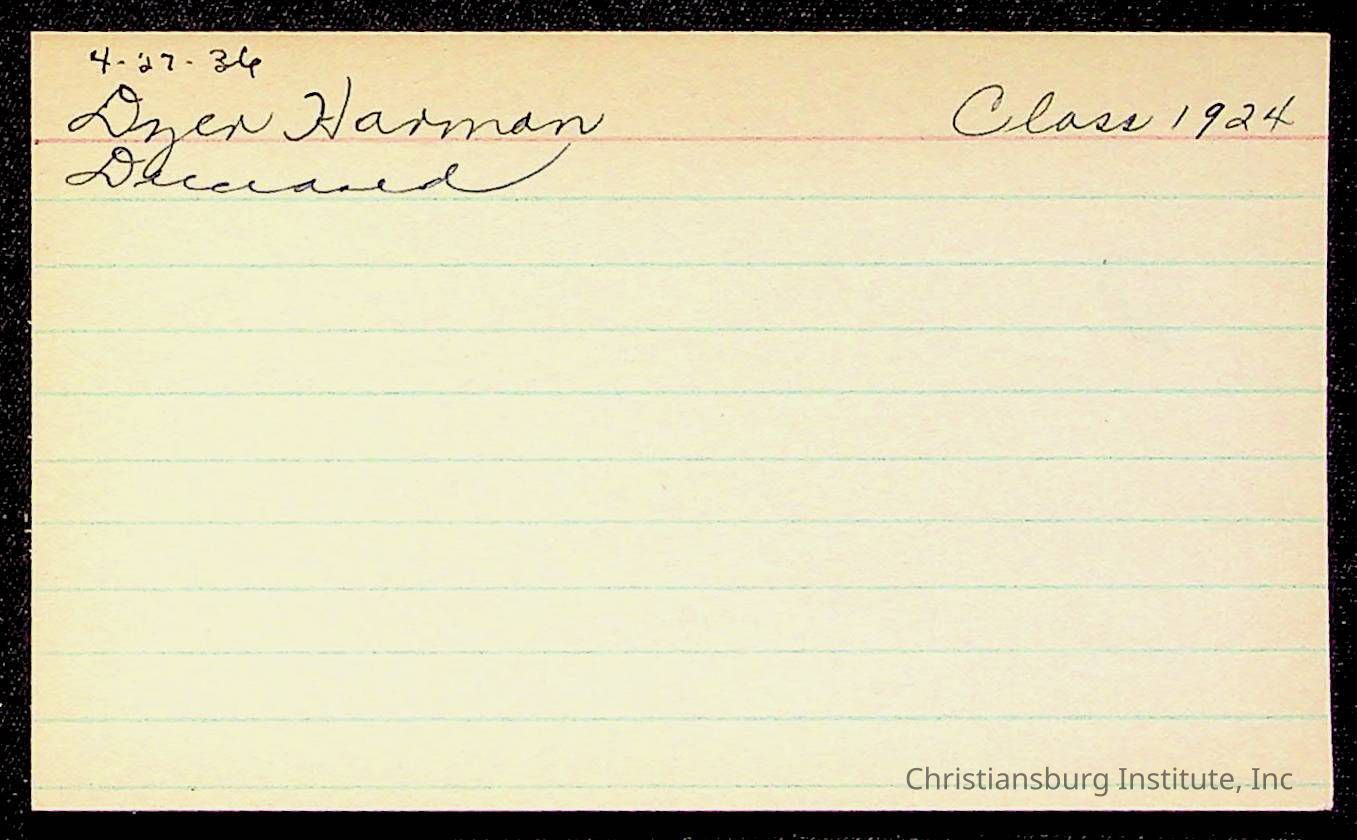 4-27-36
Dyer Harman Class 1924
Deceased
Christiansburg Institute, Inc